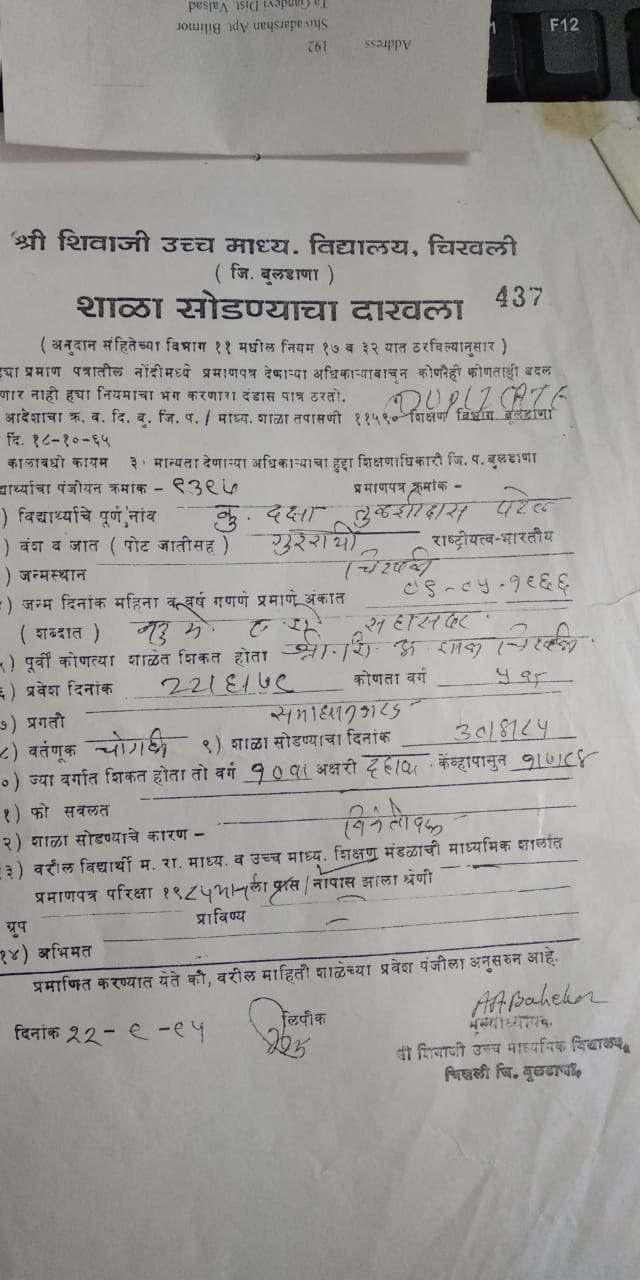 Ta Gandevi Dist. Valsad
Shivadarshan Apt. Bilimor
Address 192
F12
श्री शिवाजी उच्च माध्य. विद्यालय, चिखली
( जि. बुलडाणा )
शाळा सोडण्याचा दाखला 437
( अनुदान संहितेच्या विभाग ११ मधील नियम १७ व ३२ यात ठरविल्यानुसार )
हया प्रमाण पत्रातील नोंदीमध्ये प्रमाणपत्र देणाऱ्या अधिकाऱ्यावाचून कोणीही कोणताही बदल
णार नाही हया नियमाचा भग करणारा दंडास पात्र ठरतो. DUPLICATE
आदेशाचा क्र. व. दि. बु. जि. प. / माध्य. शाळा तपासणी ११५९० शिक्षण विभाग बुलडाणा
दि. १८-१०-६५
कालावधी कायम ३. मान्यता देणाऱ्या अधिकाऱ्याचा हुद्दा शिक्षणाधिकारी जि. प. बुलडाणा
द्यार्थ्याचा पंजीयन क्रमांक - ९३९७ प्रमाणपत्र क्रमांक -
) विद्यार्थ्याचे पूर्ण नांव कु. दक्षा तुळशीदास पटेल
) वंश व जात ( पोट जातीसह ) गुजराथी राष्ट्रीयत्व-भारतीय
) जन्मस्थान चिखली
) जन्म दिनांक महिना व वर्ष गणणे प्रमाणे अंकात ०९-०५-१९६६
( शब्दात ) नऊ मे सहासष्ट
) पूर्वी कोणत्या शाळेत शिकत होता श्री. शि. चिखली
६) प्रवेश दिनांक 22/६/७९ कोणता वर्ग ५ वा
७) प्रगती समाधानकारक
८) वर्तणूक चांगली ९) शाळा सोडण्याचा दिनांक 30/४/८५
०) ज्या वर्गात शिकत होता तो वर्ग १० वा अक्षरी दहावा केंव्हापासुन १/७/८४
१) फो सवलत
२) शाळा सोडण्याचे कारण - विनंतीवरून
३) वरील विद्यार्थी म. रा. माध्य. व उच्च माध्य. शिक्षण मंडळाची माध्यमिक शालांत
प्रमाणपत्र परिक्षा १९८५ ला पास / नापास झाला श्रेणी
ग्रुप प्राविण्य
१४) अभिमत
प्रमाणित करण्यात येते की, वरील माहिती शाळेच्या प्रवेश पंजीला अनुसरुन आहे.
दिनांक २२-९-९५ लिपीक
मुख्याध्यापक.
श्री शिवाजी उच्च माध्यमिक विद्यालय,
चिखली जि. बुलडाणा,